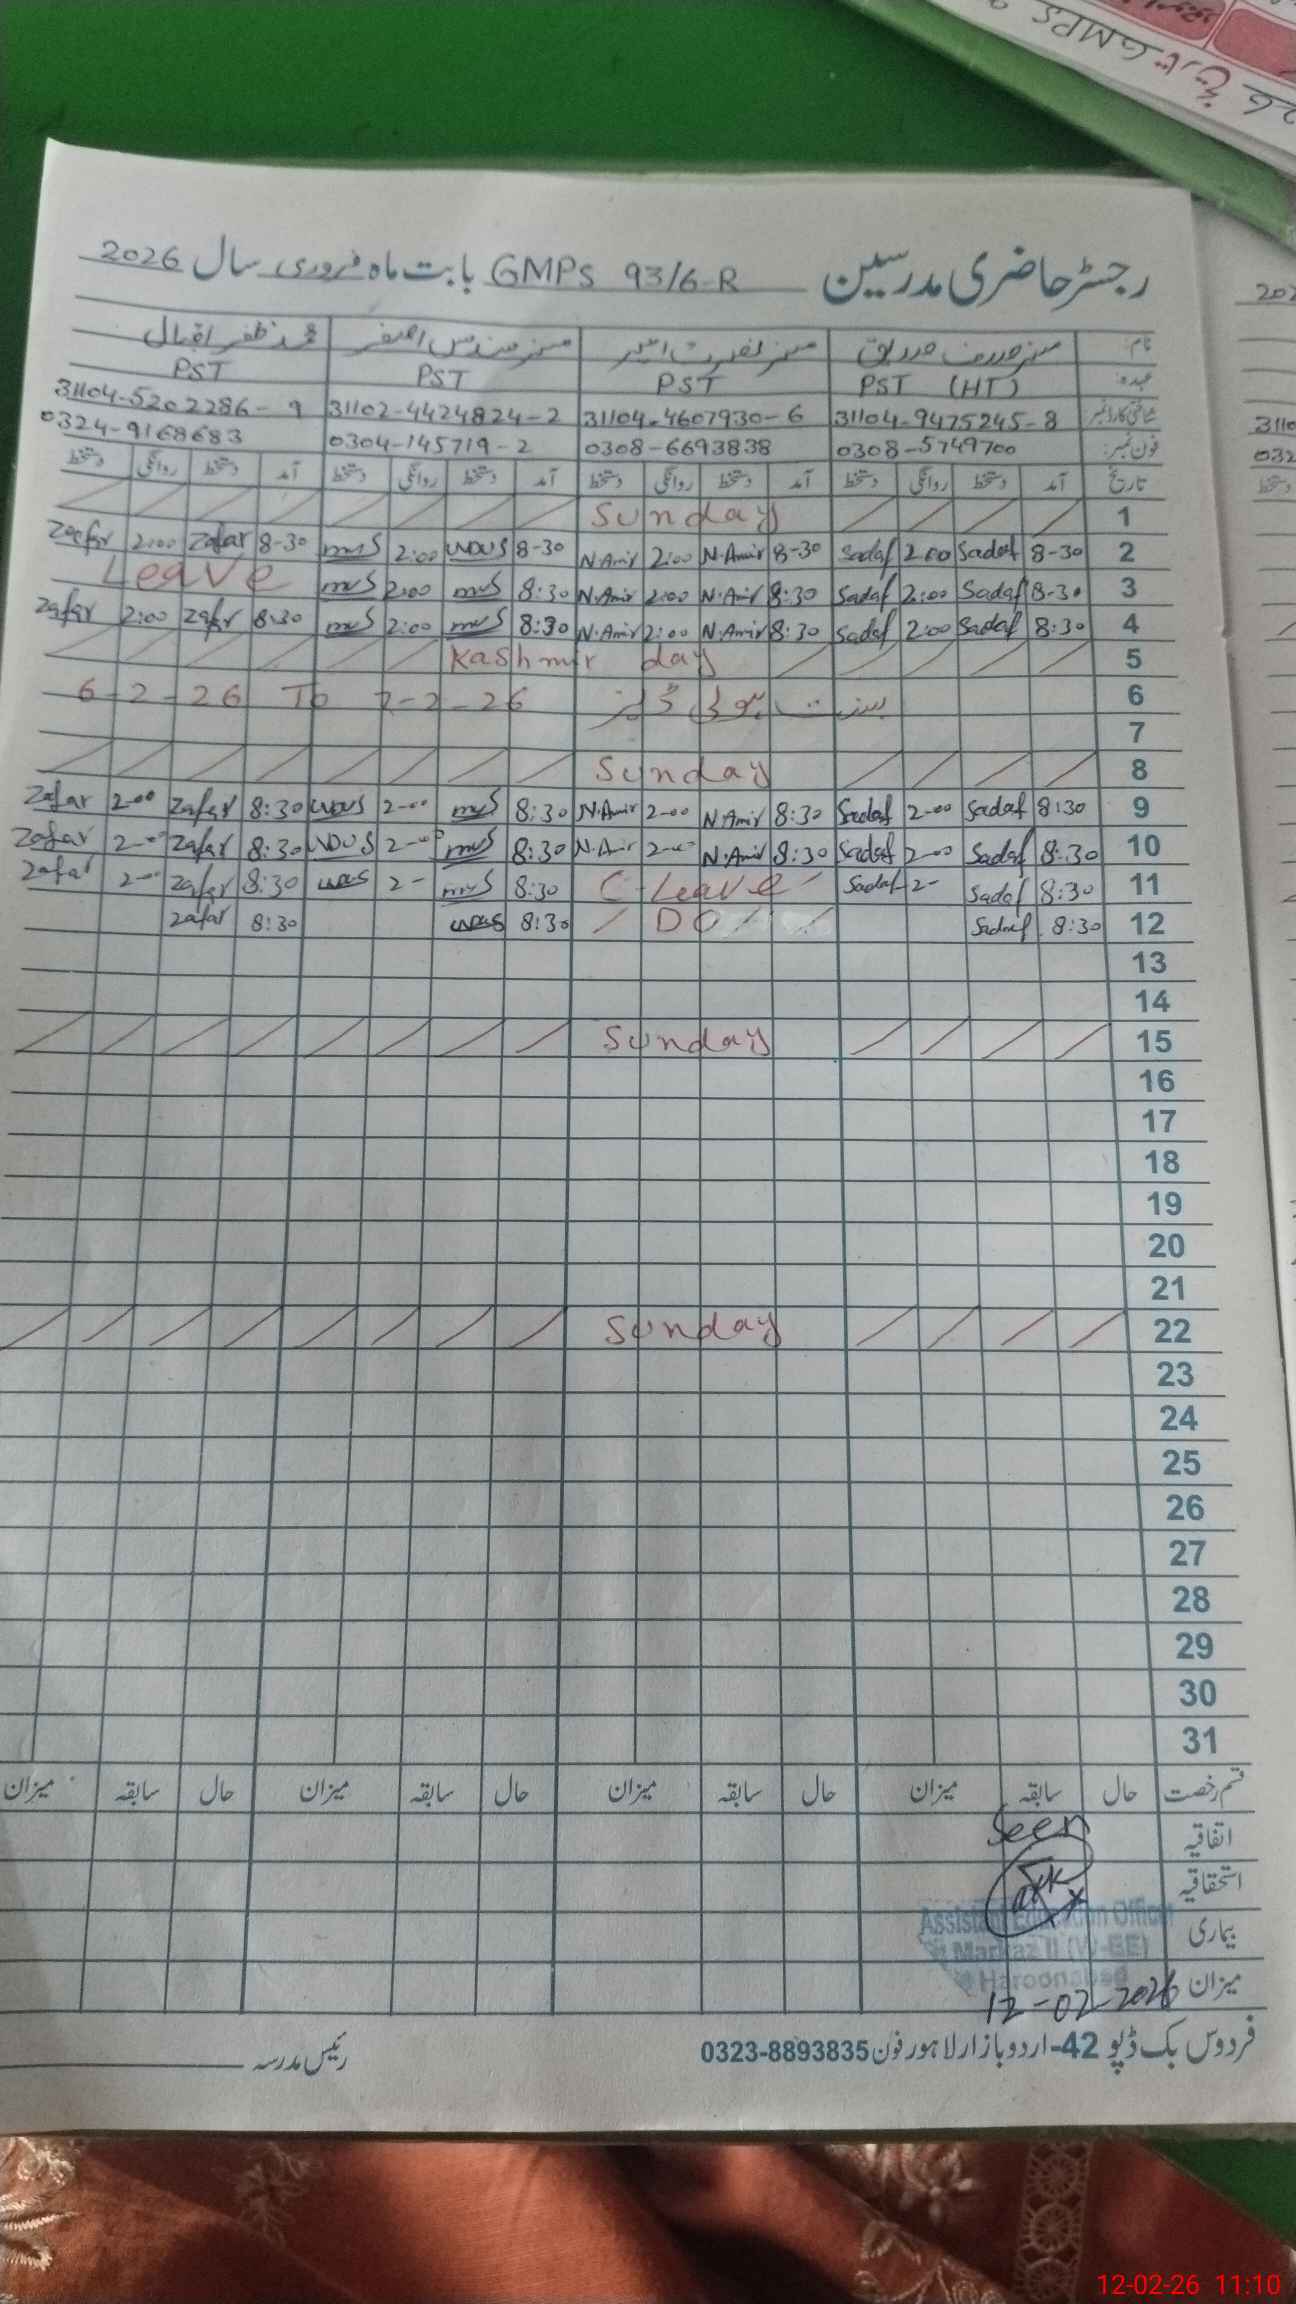 رجسٹر حاضری مدرسین GMPS 93/6-R بابت ماہ فروری سال 2026
نام: مسز صدف صدیق مسز نصرت امیر مسز سندس اصغر محمد ظفر اقبال
عہدہ: PST (HT) PST PST PST
شناختی کارڈ نمبر 31104-9475245-8 31104-4607930-6 31102-4424824-2 31104-5202286-9
فون نمبر: 0308-5749700 0308-6693838 0304-145719-2 0324-9168683
تاریخ آمد دستخط روانگی دستخط آمد دستخط روانگی دستخط آمد دستخط روانگی دستخط آمد دستخط روانگی دستخط
1 Sunday
2 8-30 Sadaf 2:00 Sadaf 8-30 N.Amir 2:00 N.Amir 8-30 2:00 8-30 Zafar 2:00 Zafar
3 8-30 Sadaf 2:00 Sadaf 8:30 N.Amir 2:00 N.Amir 8:30 2:00 Leave
4 8:30 Sadaf 2:00 Sadaf 8:30 N.Amir 2:00 N.Amir 8:30 2:00 8:30 Zafar 2:00 Zafar
5 Kashmir day
6 بسنت ہولی ڈیز 6-2-26 To 7-2-26
7
8 Sunday
9 8:30 Sadaf 2-00 Sadaf 8:30 N.Amir 2-00 N.Amir 8:30 2-00 8:30 Zafar 2-00 Zafar
10 8:30 Sadaf 2-00 Sadaf 8:30 N.Amir 2-00 N.Amir 8:30 2-00 8:30 Zafar 2-00 Zafar
11 8:30 Sadaf 2- Sadaf C-Leave 8:30 2- 8:30 Zafar 2-00 Zafar
12 8:30 Sadaf DO 8:30 8:30 Zafar
13
14
15 Sunday
16
17
18
19
20
21
22 Sunday
23
24
25
26
27
28
29
30
31
قسم رخصت حال سابقہ میزان حال سابقہ میزان حال سابقہ میزان حال سابقہ میزان
اتفاقیہ Seen
استحقاقیہ
Assistant Education Officer
بیماری Markaz II (W-EE)
Haroonabad
میزان 12-02-2026
فردوس بک ڈپو 42-اردو بازار لاہور فون 0323-8893835 رئیس مدرسہ
12-02-26 11:10